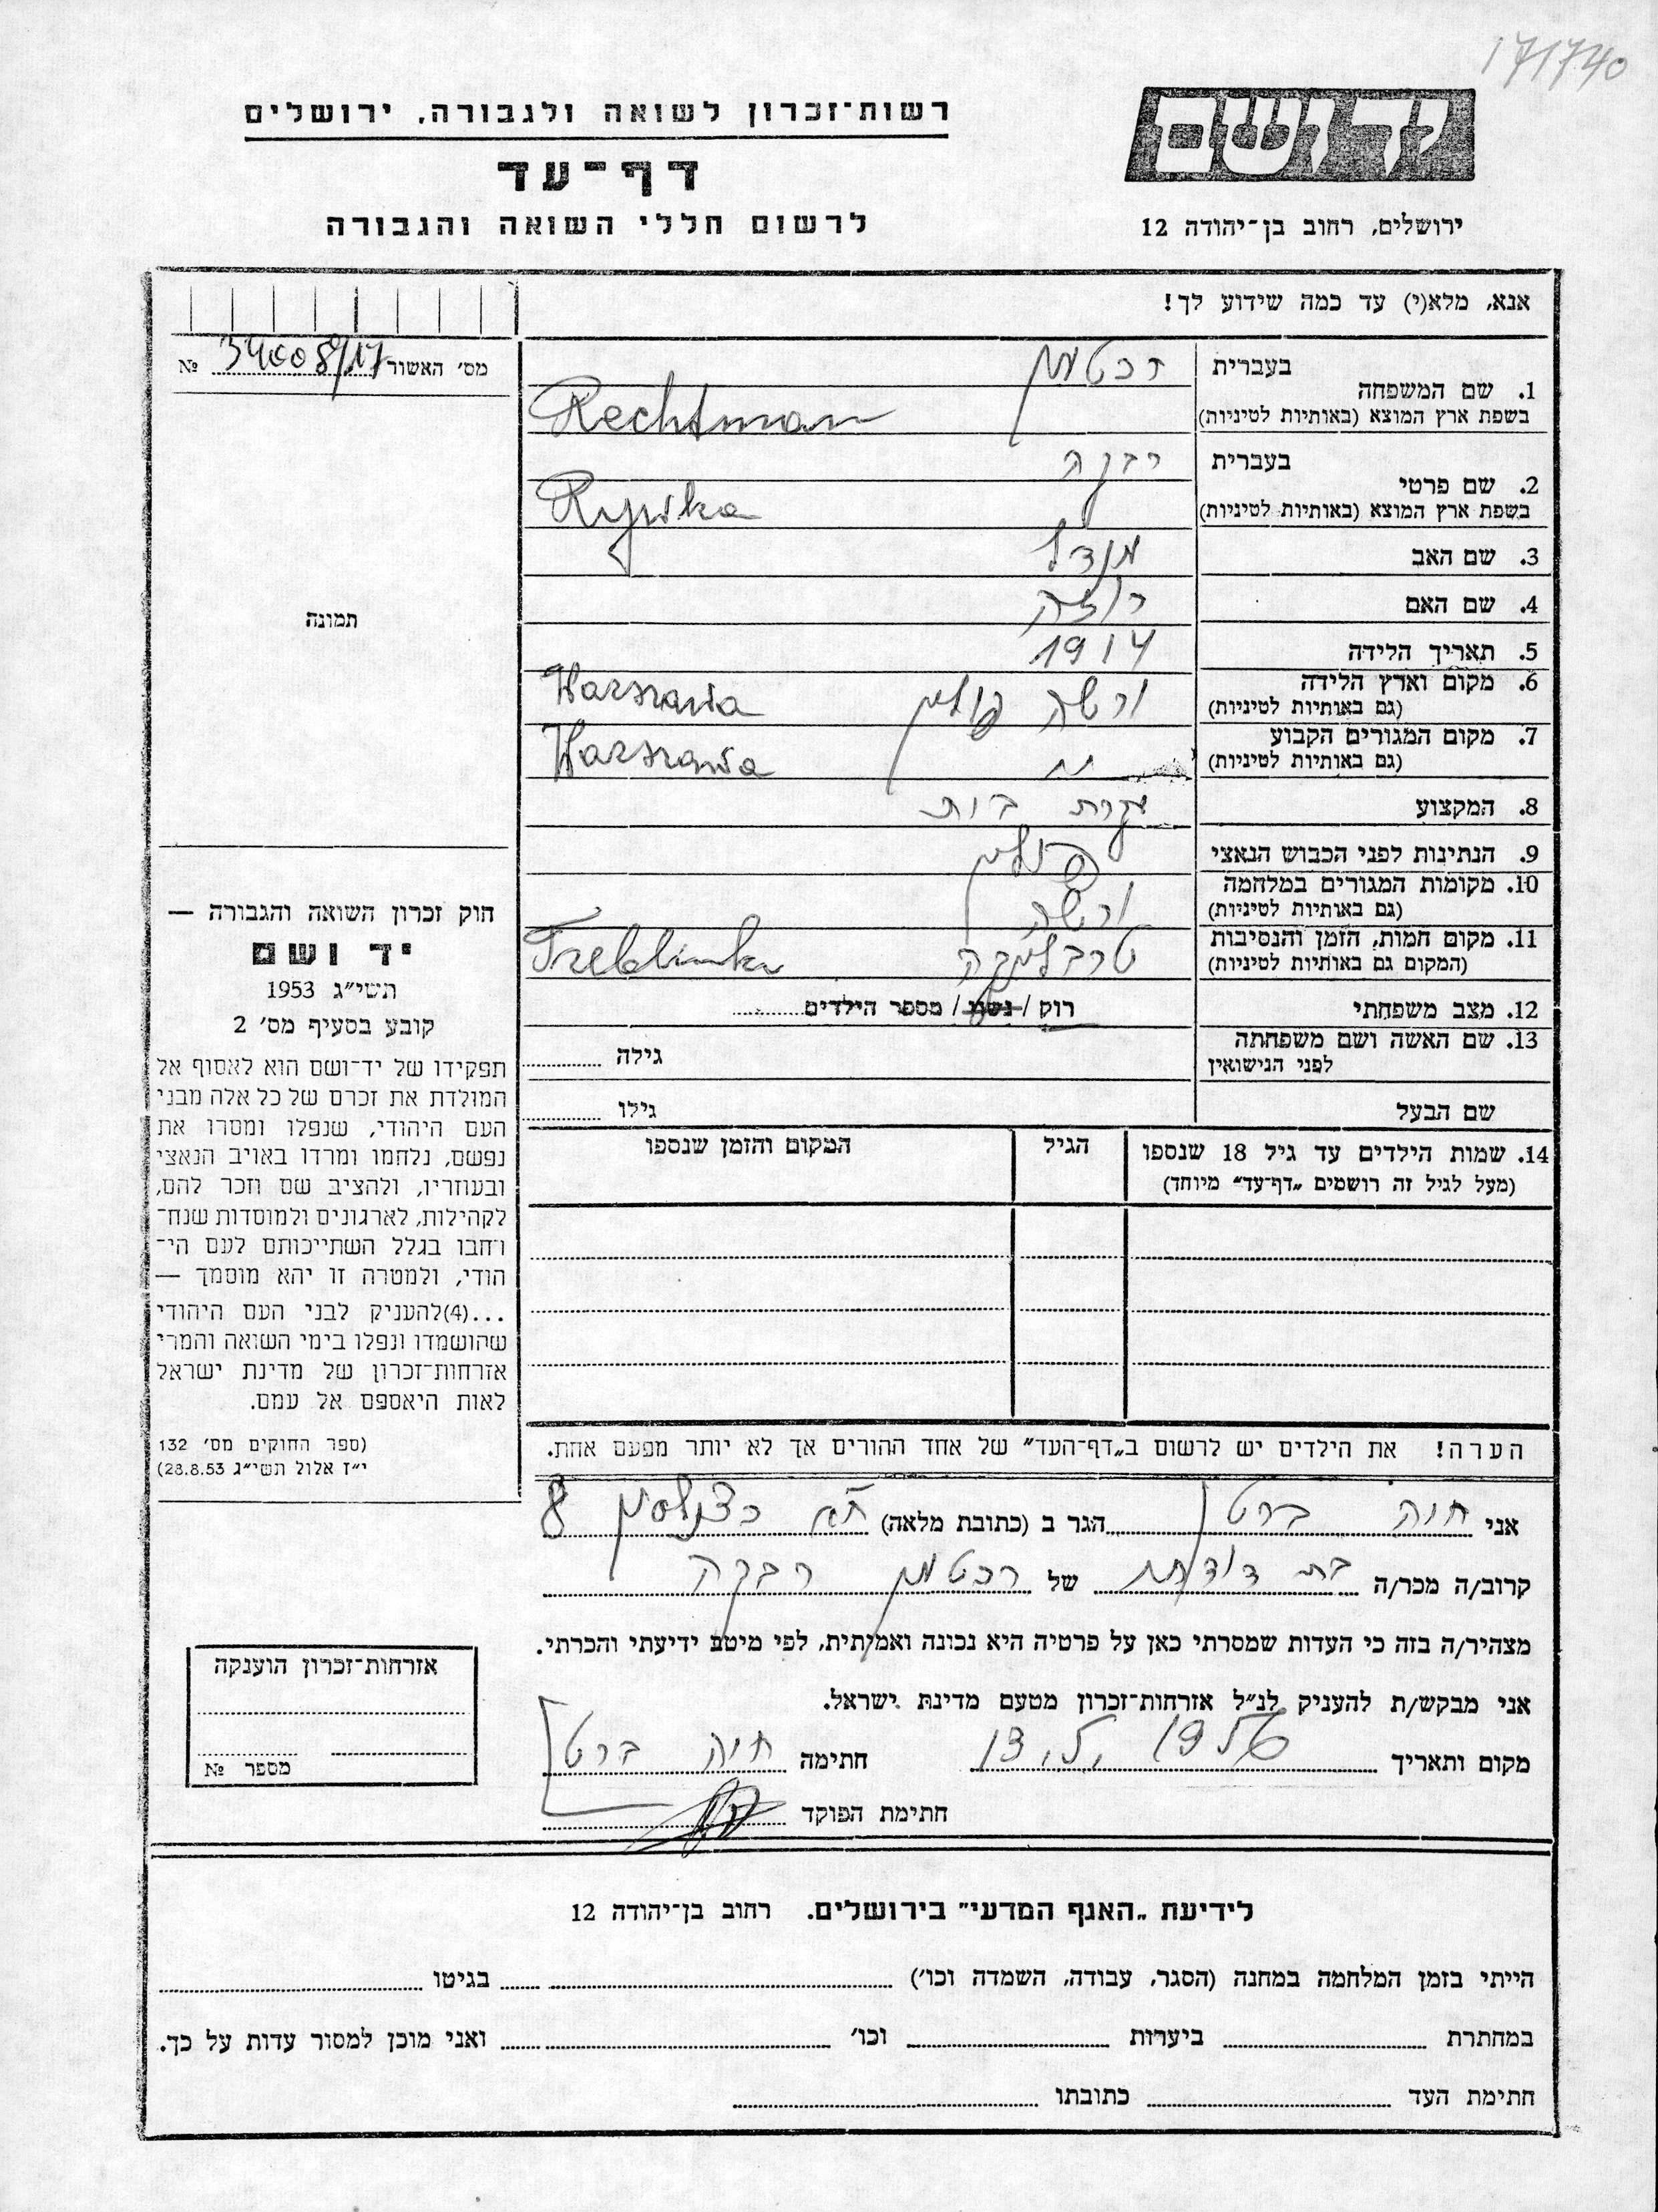 171740
ידושם
רשות־זכרון לשואה ולגבורה, ירושלים
דף־עד
לרשום חללי השואה והגבורה
ירושלים, רחוב בן־יהודה 12
אנא, מלא(י) עד כמה שידוע לך!
מס׳ האשור №
1. שם המשפחה
בעברית רכטמן
בשפת ארץ המוצא (באותיות לטיניות) Rechtman
2. שם פרטי
בעברית רבקה
בשפת ארץ המוצא (באותיות לטיניות) Rywka
3. שם האב מנדל
4. שם האם רוזה
5. תאריך הלידה 1914
6. מקום וארץ הלידה ורשה פולין Warszawa
(גם באותיות לטיניות)
7. מקום המגורים הקבוע ״ Warszawa
(גם באותיות לטיניות)
8. המקצוע עקרת בית
9. הנתינות לפני הכבוש הנאצי פולין
10. מקומות המגורים במלחמה ורשה
(גם באותיות לטיניות)
11. מקום המות, הזמן והנסיבות טרבלינקה Treblinka
(המקום גם באותיות לטיניות)
12. מצב משפחתי רוק / נשוי / מספר הילדים
13. שם האשה ושם משפחתה
לפני הנישואין גילה
שם הבעל גילו
14. שמות הילדים עד גיל 18 שנספו
(מעל לגיל זה רושמים „דף־עד״ מיוחד)
הגיל
המקום והזמן שנספו
הערה! את הילדים יש לרשום ב„דף־העד״ של אחד ההורים אך לא יותר מפעם אחת.
תמונה
חוק זכרון השואה והגבורה —
יד ושם
תשי״ג 1953
קובע בסעיף מס׳ 2
תפקידו של יד־ושם הוא לאסוף אל
המולדת את זכרם של כל אלה מבני
העם היהודי, שנפלו ומסרו את
נפשם, נלחמו ומרדו באויב הנאצי
ובעוזריו, ולהציב שם וזכר להם,
לקהילות, לארגונים ולמוסדות שנח־
רבו בגלל השתייכותם לעם הי־
הודי, ולמטרה זו יהא מוסמך —
...(4) להעניק לבני העם היהודי
שהושמדו ונפלו בימי השואה והמרי
אזרחות־זכרון של מדינת ישראל
לאות היאספם אל עמם.
(ספר החוקים מס׳ 132
י״ז אלול תשי״ג 28.8.53)
אני חוה ברט הגר ב (כתובת מלאה) ת״א כצנלסון 8
קרוב/ה מכר/ה בת דודתה של רכטמן רבקה
מצהיר/ה בזה כי העדות שמסרתי כאן על פרטיה היא נכונה ואמיתית, לפי מיטב ידיעתי והכרתי.
אני מבקש/ת להעניק לנ״ל אזרחות־זכרון מטעם מדינת ישראל.
מקום ותאריך חתימה חוה ברט
חתימת הפוקד
אזרחות־זכרון הוענקה
מספר №
לידיעת „האגף המדעי״ בירושלים. רחוב בן־יהודה 12
הייתי בזמן המלחמה במחנה (הסגר, עבודה, השמדה וכו׳) בגיטו
במחתרת ביערות וכו׳ ואני מוכן למסור עדות על כך.
חתימת העד כתובתו